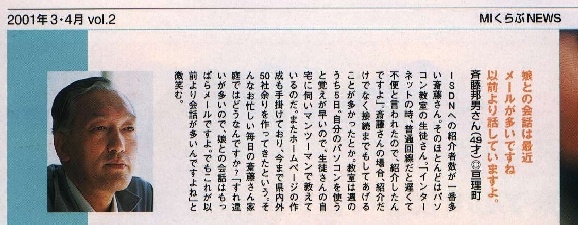 2001年3・4月 vol.2
MIくらぶNEWS
娘との会話は最近
メールが多いですね
以前より話していますよ。
斉藤邦男さん(49才)◎亘理町
ISDNへの紹介者数が一番多
い斎藤さん。そのほとんどはパソ
コン教室の生徒さん。「インター
ネットの時、普通回線だと遅くて
不便と言われたので、紹介したん
ですよ」。斎藤さんの場合、紹介だ
けでなく接続までもしてあげる
ことが多かったとか。教室は週の
うち5日。自分のパソコンを使う
と覚えが早いので、生徒さんの自
宅に伺いマンツーマンで教えて
いるのだ。またホームページの作
成も手掛けており、今まで県内外
50社余りを作ってきたという。そ
んなお忙しい毎日の斎藤さん家
庭ではどうなんですか?「すれ違
いが多いので、娘との会話はもっ
ぱらメールですよ。でもこれが以
前より会話が多いんですよね」と
微笑む。